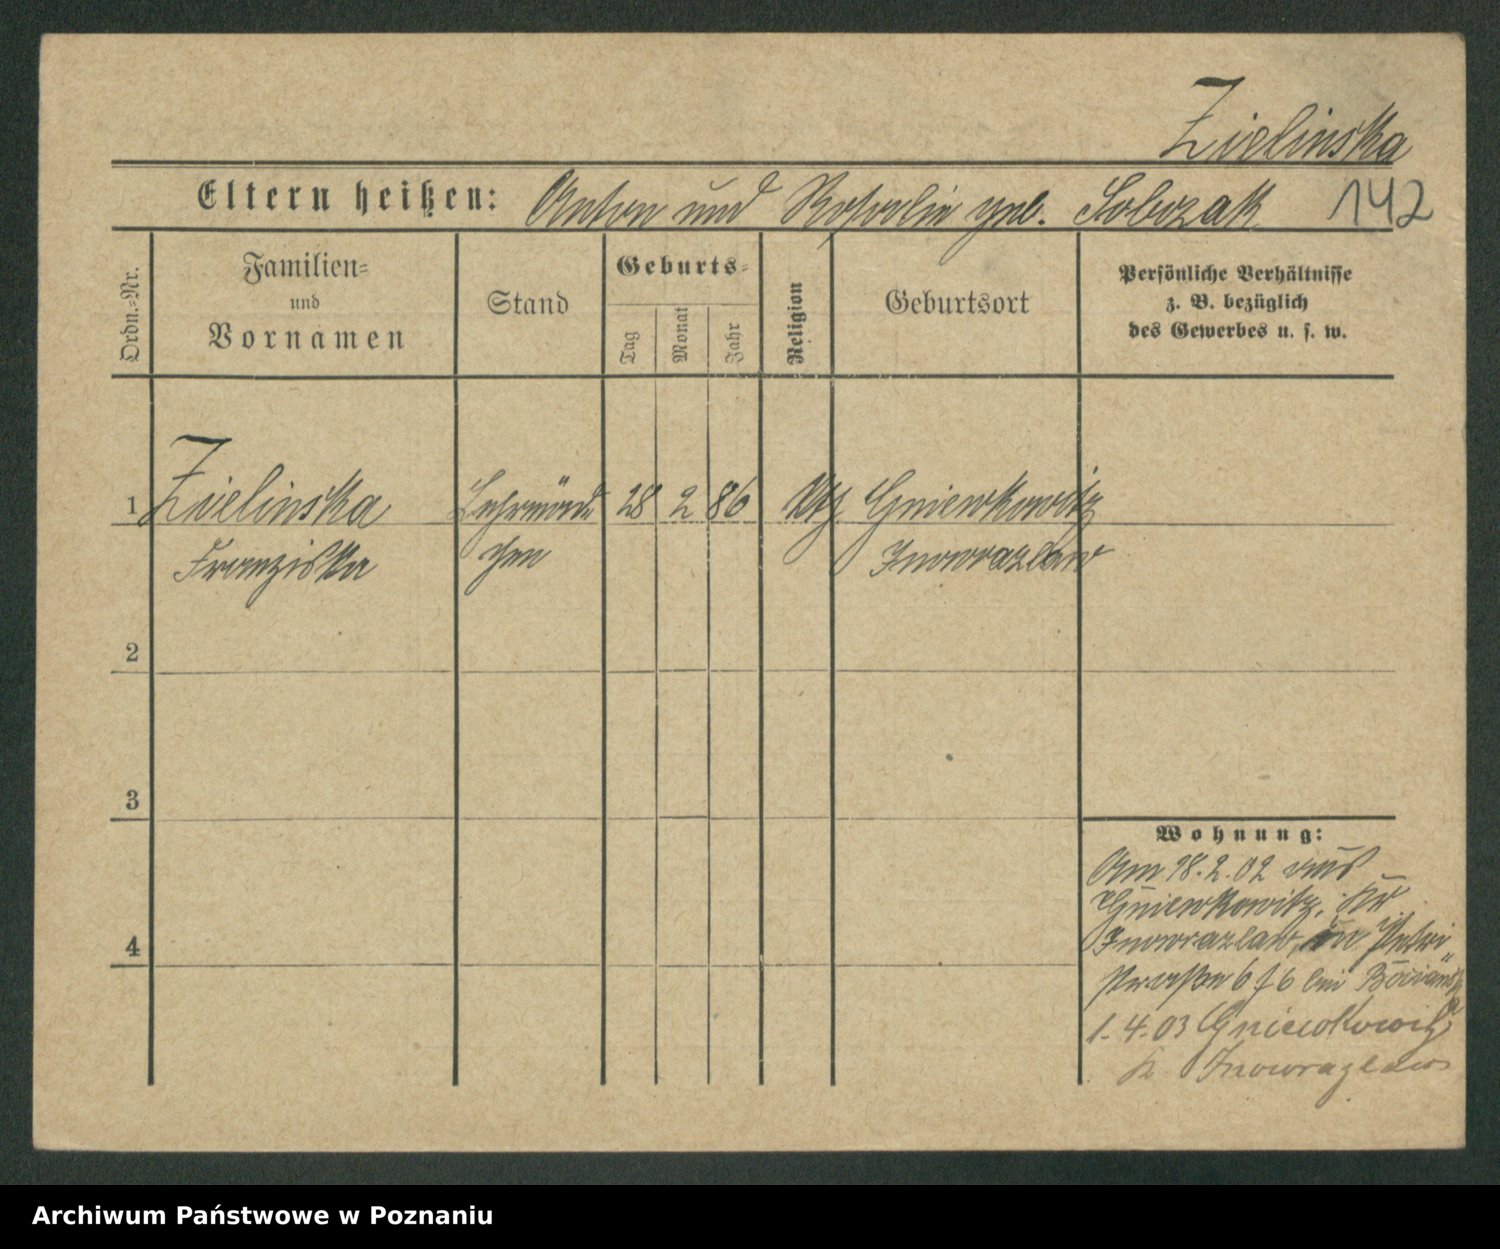 Zielinska
Eltern heißen: Anton und Rosalie geb. Sobczak 142
Ordn.-Nr.
Familien-
und
Vornamen
Stand
Geburts-
Tag
Monat
Jahr
Religion
Geburtsort
Persönliche Verhältnisse
z. B. bezüglich
des Gewerbes u. s. w.
1 Zielinska Lehrmäd- 28 2 86 kth. Gniewkowitz
Franziska chen Inowrazlaw
2
3
Wohnung:
Am 18.2.02 aus
Gniewkowitz, Kr
Inowrazlaw, in Petri
straße 6 bei
4
1.4.03 Gniewkowitz
K Inowrazlaw
Archiwum Państwowe w Poznaniu